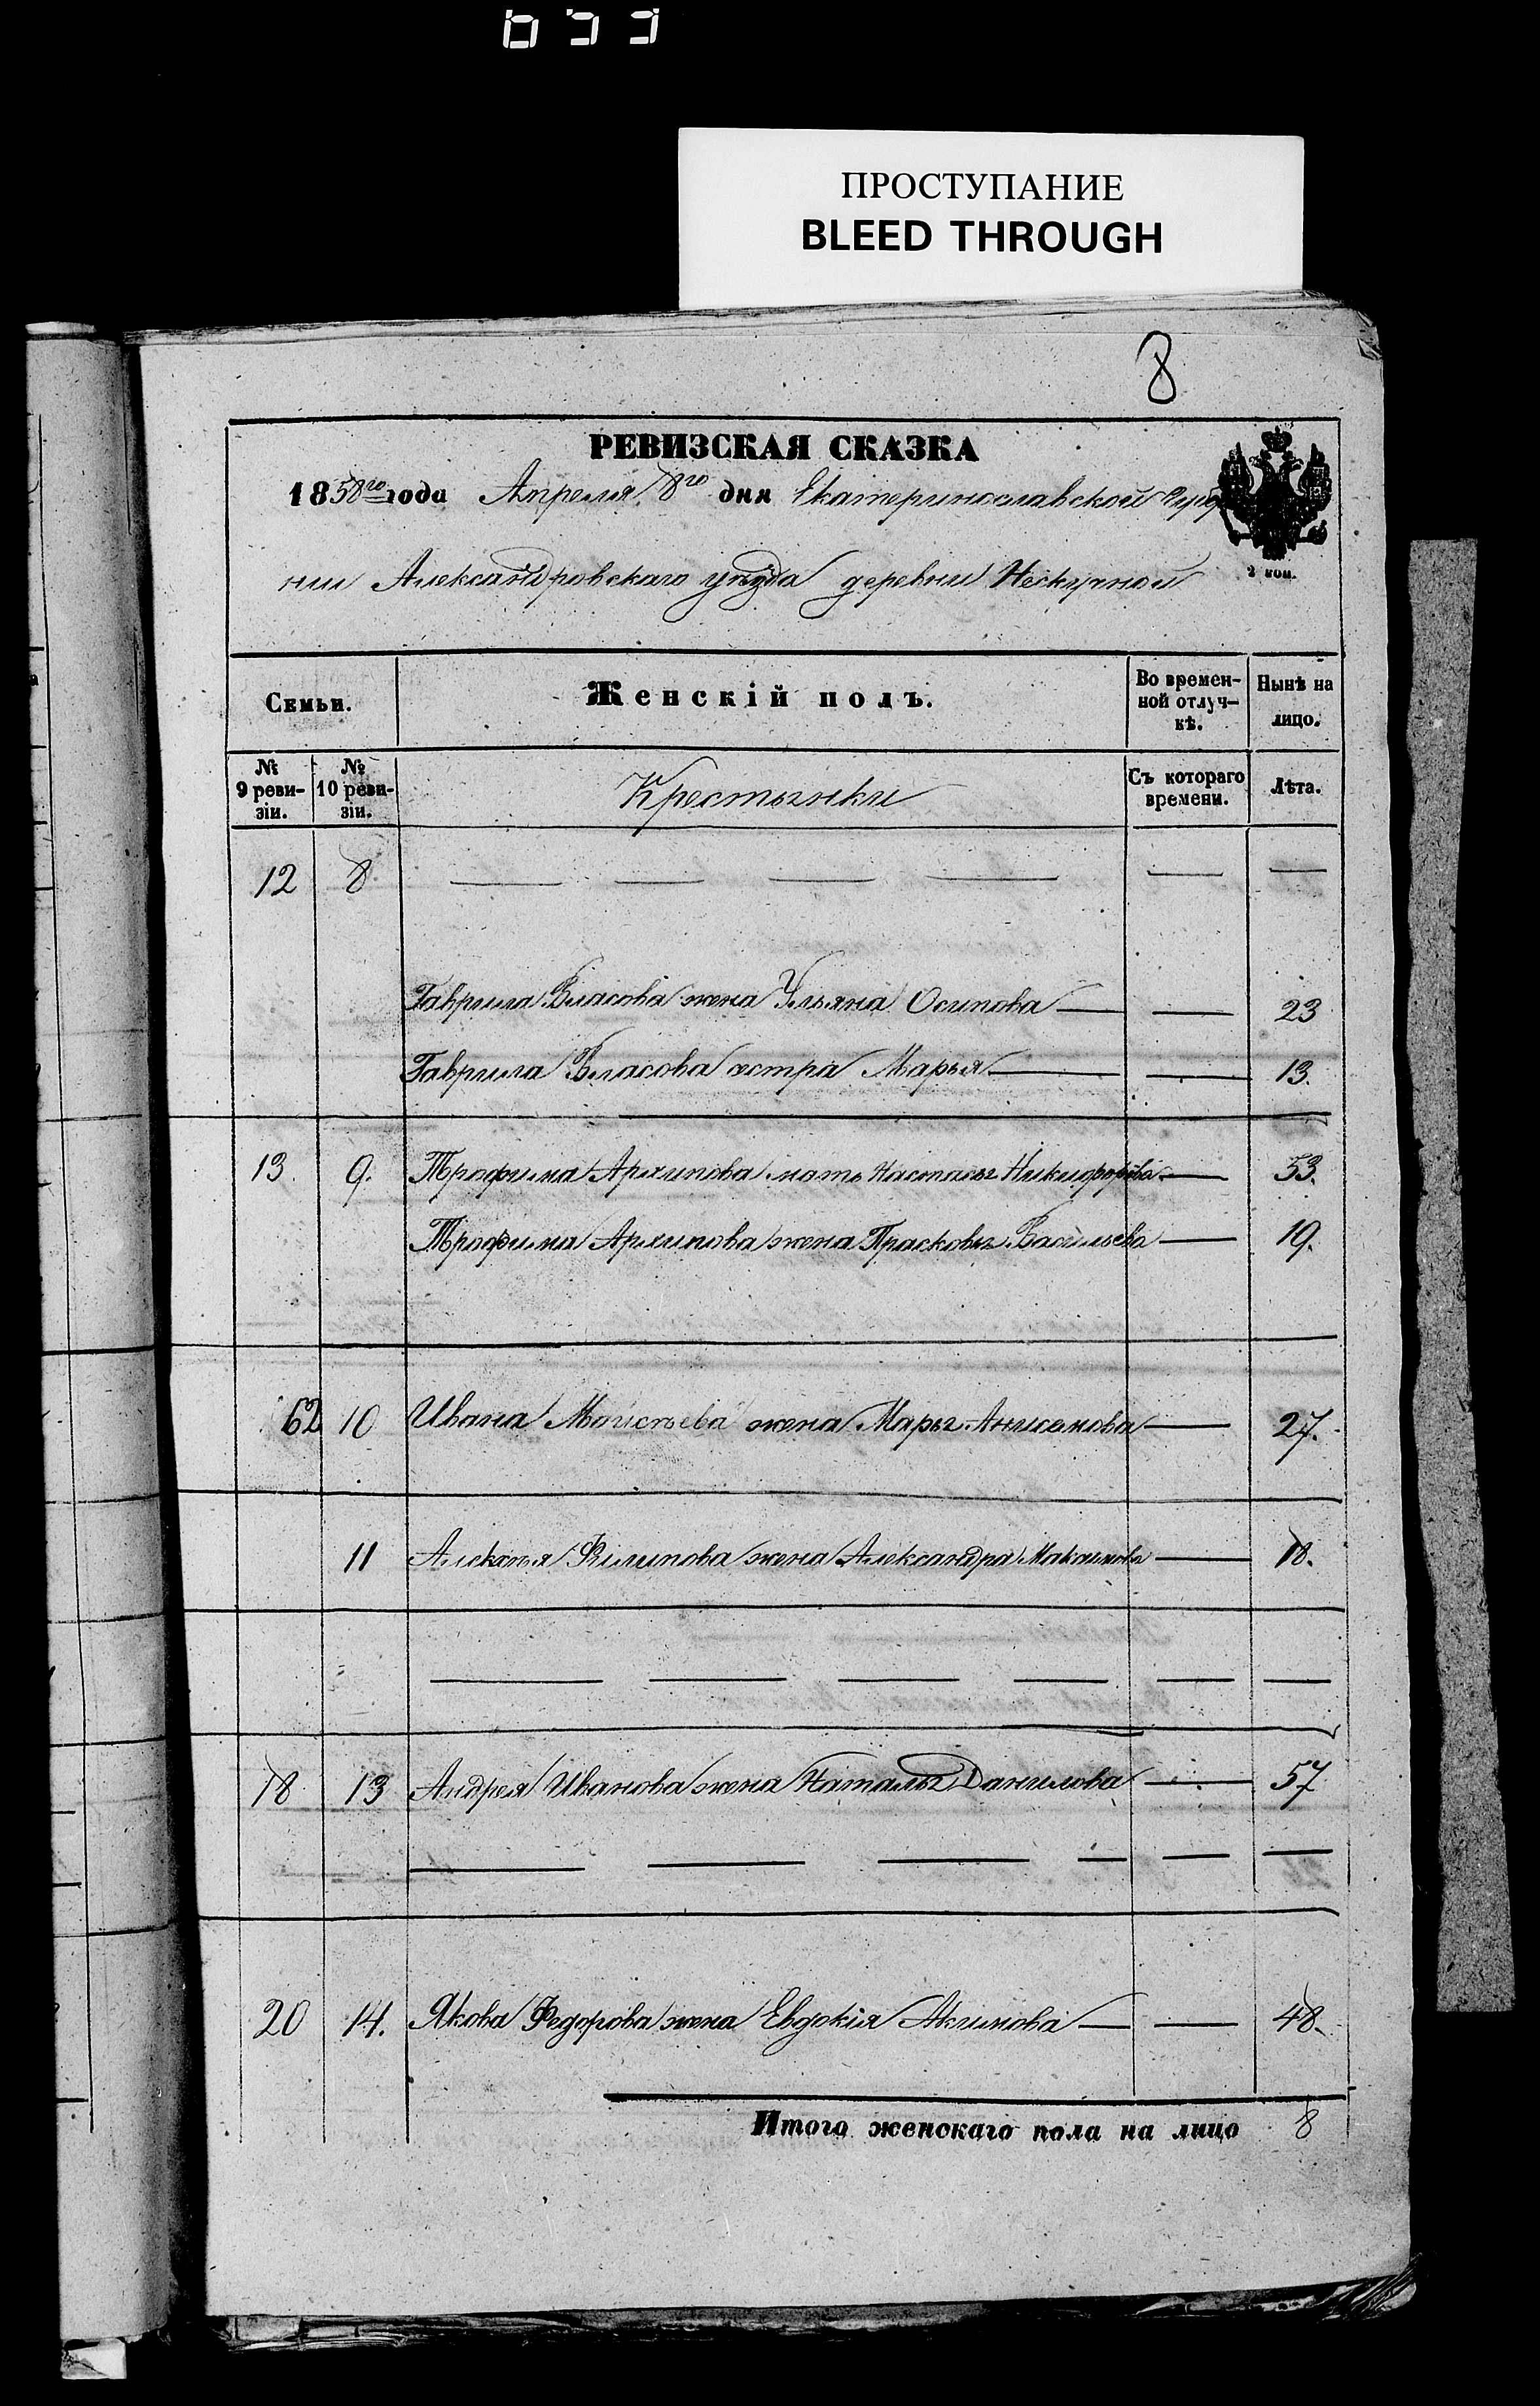 ПРОСТУПАНИЕ
BLEED THROUGH
8
РЕВИЗСКАЯ СКАЗКА
1858го года Апреля 8го дня Екатеринославской Губер
нии Александровскаго уѣзда деревни Нескучной
2 коп.
Семьи. Женскій полъ. Во времен-ной отлуч-кѣ. Нынѣ на лицо.
№ 9 реви-зіи. № 10 реви-зіи. Крестьянки Съ котораго времени. Лѣта.
12 8 — — — — — —
Гаврила Власова жена Ульяна Осипова — — 23
Гаврила Власова сестра Марья — — 13.
13. 9. Трофима Архипова мать Настасья Никифорова — 53.
Трофима Архипова жена Прасковья Васильева — 19.
62 10 Ивана Моисѣева жена Марья Анисимова — 27.
11 Алексѣя Филипова жена Александра Максимова — 18.
— — — — — —
18 13 Андрея Иванова жена Наталья Данилова — 57
— — — — — —
20 14. Якова Федорова жена Евдокія Акимова — — 48.
Итого женскаго пола на лицо 8